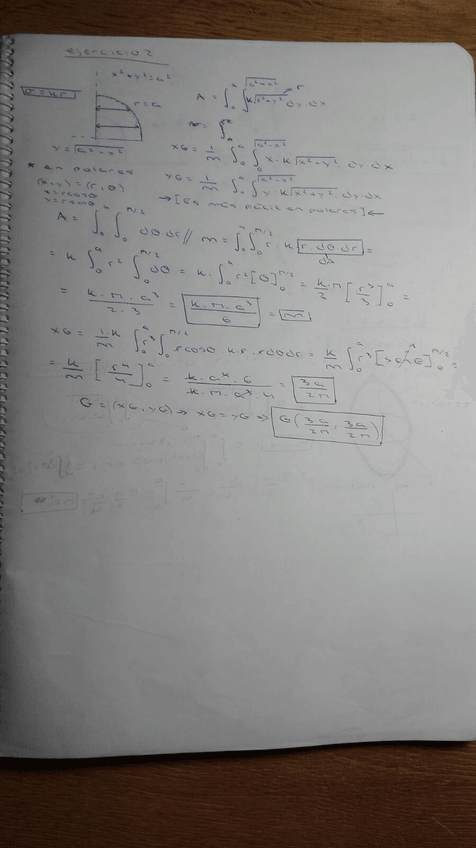 ejercicio 2
x²+y²=a²
σ=kr
r=a
A = ∫₀ᵃ ∫₀^√(a²-x²) k√(x²+y²) dy dx
r
y=√(a²-x²)
xG = 1/m ∫₀ᵃ ∫₀^√(a²-x²) x·k√(x²+y²) dy·dx
yG = 1/m ∫₀ᵃ ∫₀^√(a²-x²) y·k√(x²+y²) dy·dx
* en polares
(x,y)=(r,θ)
x=rcosθ
→[Es más fácil en polares]←
A = ∫₀ᵃ ∫₀^π/2 dθdr // m = ∫₀ᵃ ∫₀^π/2 r·k r·dθ·dr =
= k ∫₀ᵃ r² ∫₀^π/2 dθ = k·∫₀ᵃ r²[θ]₀^π/2 = k·π/2 [r³/3]₀ᵃ =
= k·π·a³/2·3 = k·π·a³/6 = m
xG = 1/m·k ∫₀ᵃ ∫₀^π/2 rcosθ·k·r·rdθdr = k/m ∫₀ᵃ r³[senθ]₀^π/2 =
= k/m [r⁴/4]₀ᵃ = k·a⁴·6/k·π·a³·4 = 3a/2π
G=(xG,yG) ⇒ xG=yG ⇒ G(3a/2π, 3a/2π)